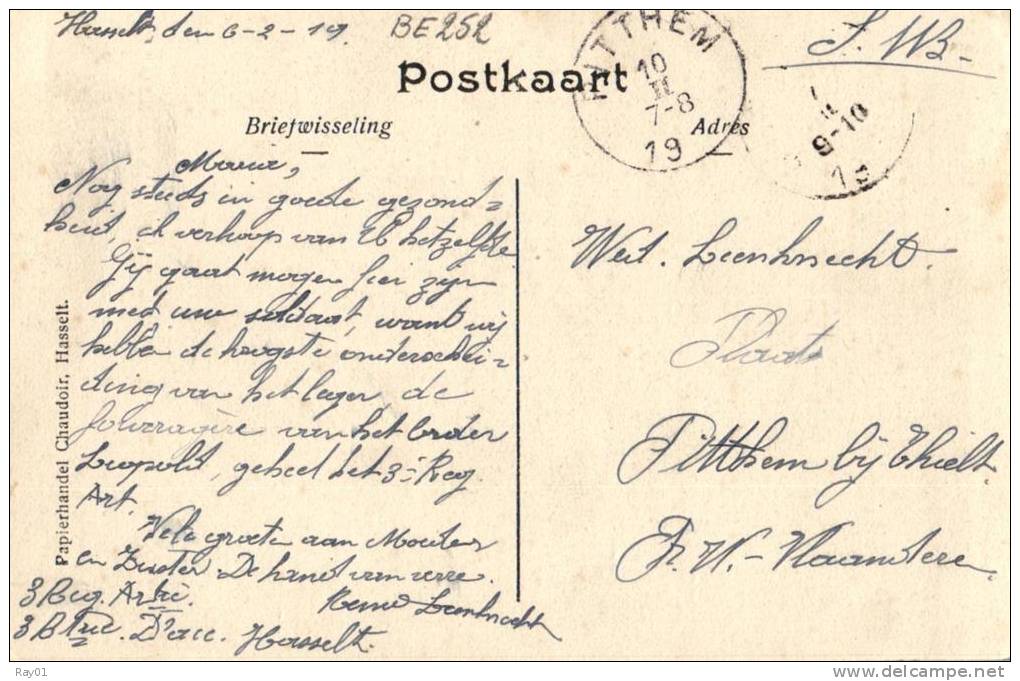 Hasselt, den 6-2-19.
BE252
S. M.
Postkaart
PITTHEM
10
II
7-8
19
Briefwisseling
Adres
II
9-10
19
Nog steeds in goede gezond=
heid, ik verhoop van U hetzelfde.
Gij gaat mogen fier zijn
met uw soldaat, want wij
hebben de hoogste onderschei=
ding van het leger, de
fouragère van het order
Leopold, geheel het 3e Reg.
Art.
Vele groeten aan Moeder
en Zuster. De hand van verre.
René Leenknecht
3 Reg. Artie
3 Btrie. D'acc. Hasselt.
Papierhandel Chaudoir, Hasselt.
Leenknecht.
Plaats
Pitthem bij Thielt.
Pr. W.-Vlaanderen.
Ray01
www.delcampe.net